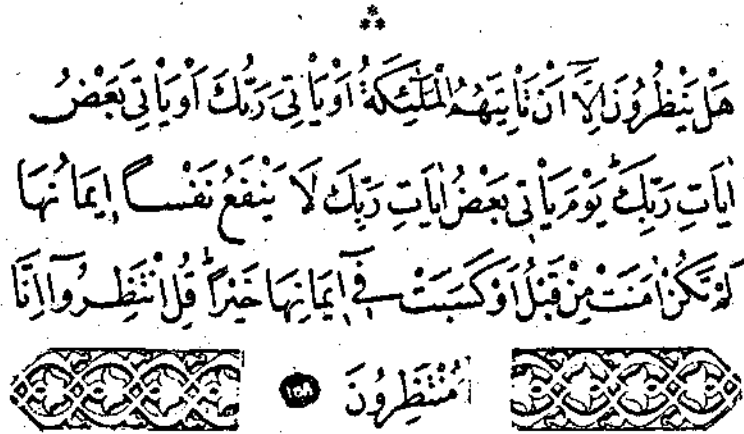 هَلْ يَنْظُرُونَ اِلَّٓا اَنْ تَأْتِيَهُمُ الْمَلٰٓئِكَةُ اَوْ يَأْتِىَ رَبُّكَ اَوْ يَأْتِىَ بَعْضُ
اٰيَاتِ رَبِّكَۜ يَوْمَ يَأْتٖى بَعْضُ اٰيَاتِ رَبِّكَ لَا يَنْفَعُ نَفْسًا اٖيمَانُهَا
لَمْ تَكُنْ اٰمَنَتْ مِنْ قَبْلُ اَوْ كَسَبَتْ فٖٓى اٖيمَانِهَا خَيْرًاۜ قُلِ انْتَظِرُٓوا اِنَّا
مُنْتَظِرُونَ ١٥٨